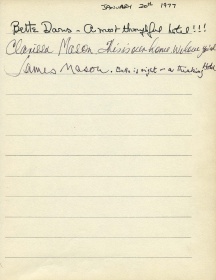 JANUARY 20th 1977
Bette Davis - A most thoughtful hotel!!!
Clarissa Mason This is our home. We love
James Mason. Bette is right - a thinking Hotel